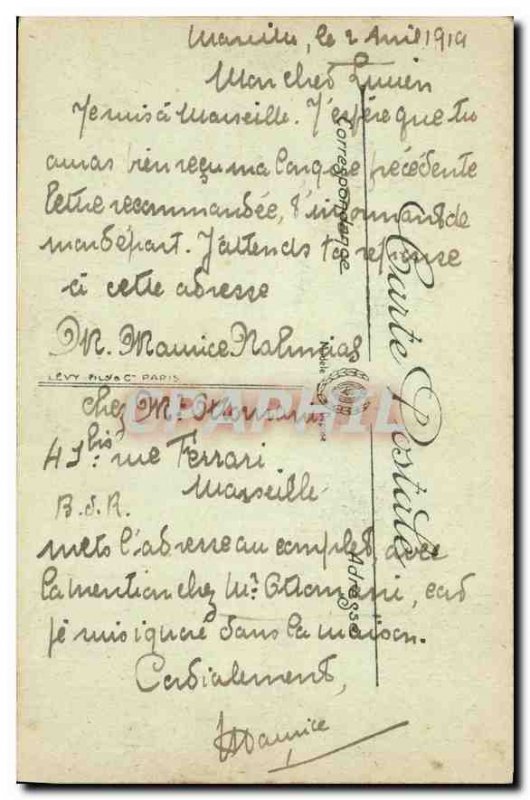 Marseille, le 2 Avril 1919
Mon cher Lucien
Je suis à Marseille. J'espère que tu
auras bien reçu ma longue précédente
lettre recommandée, t'informant de
mon départ. J'attends ta réponse
à cette adresse
M. Maurice Nahmias
LÉVY FILS & Cie PARIS
chez Mr Ottomani
41 bis rue Ferrari
Marseille
B. d. R.
mets l'adresse au complet, avec
la mention chez Mr Ottomani, car
je suis ignoré dans la maison.
Cordialement,
Maurice
Carte Postale
Correspondance
Adresse
CPAPHIL